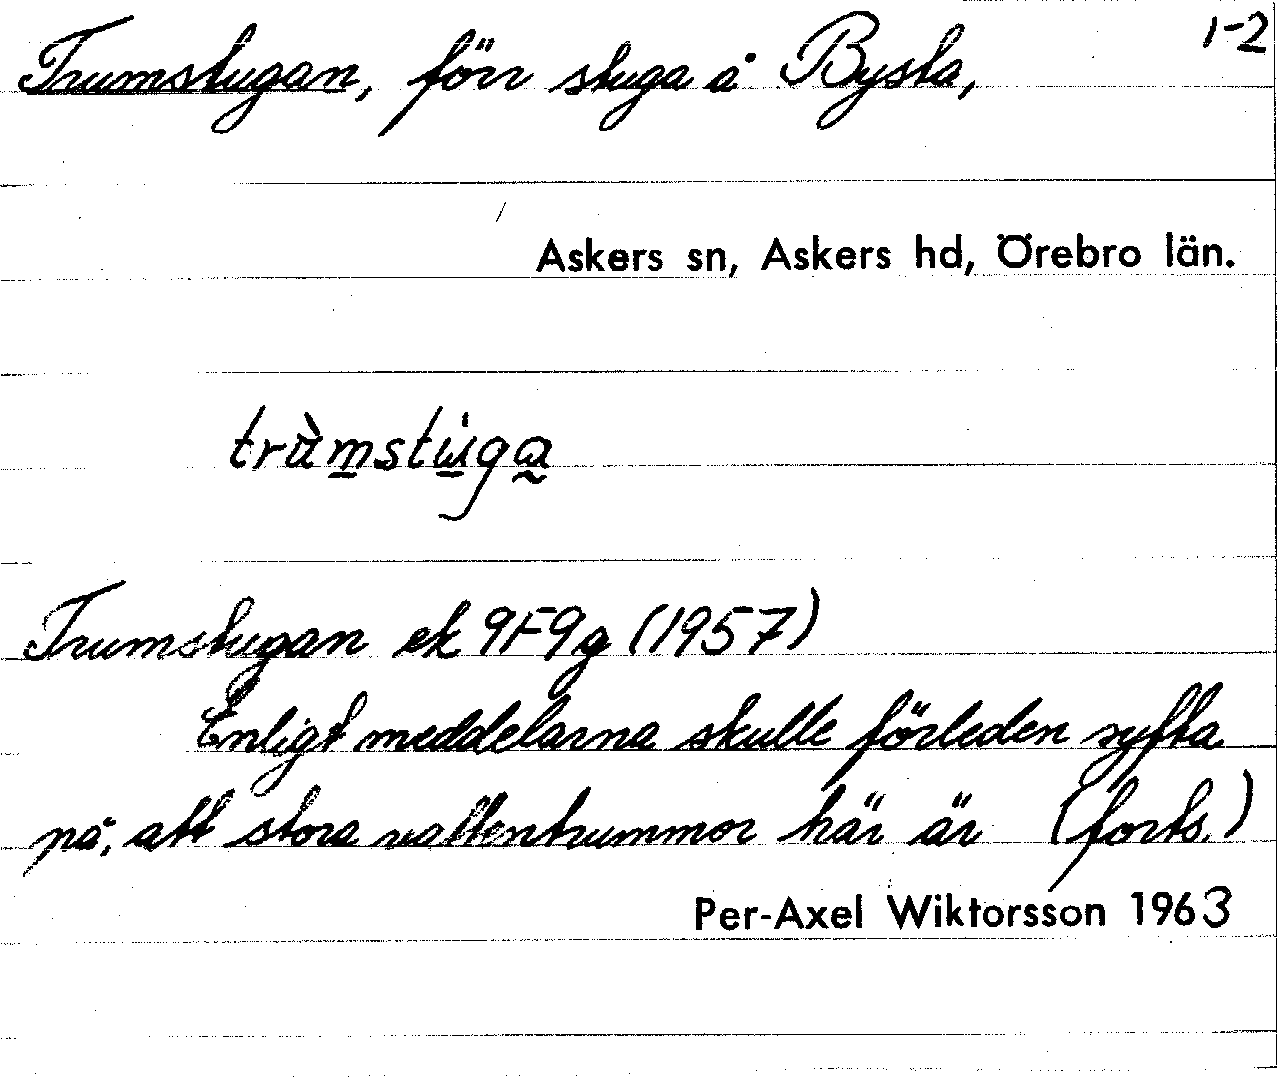 1-2
Trumstugan, förr stuga å Bysta,
Askers sn, Askers hd, Örebro län.
trùmstu̇ga
Trumstugan ek 9F9g (1957)
Enligt meddelarna skulle förleden syfta
på, att stora vattentrummor här är (forts.)
Per-Axel Wiktorsson 1963